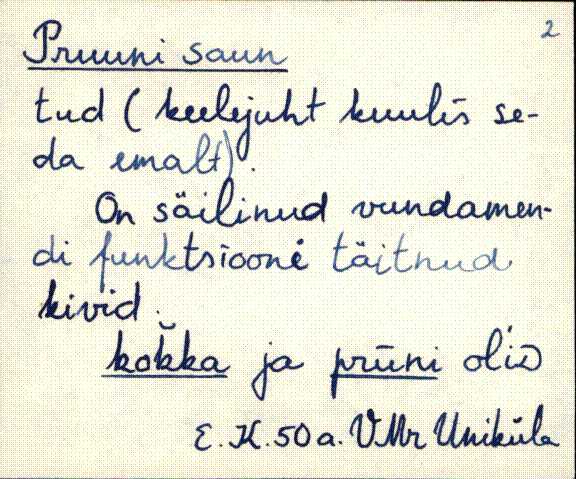 2
Pruuni saun
tud (keelejuht kuulis se-
da emalt).
On säilinud vundamen-
di funktsiooni täitnud
kivid.
kok̆ka ja prüni oliᴅ
E. K. 50 a. VMr Uniküla